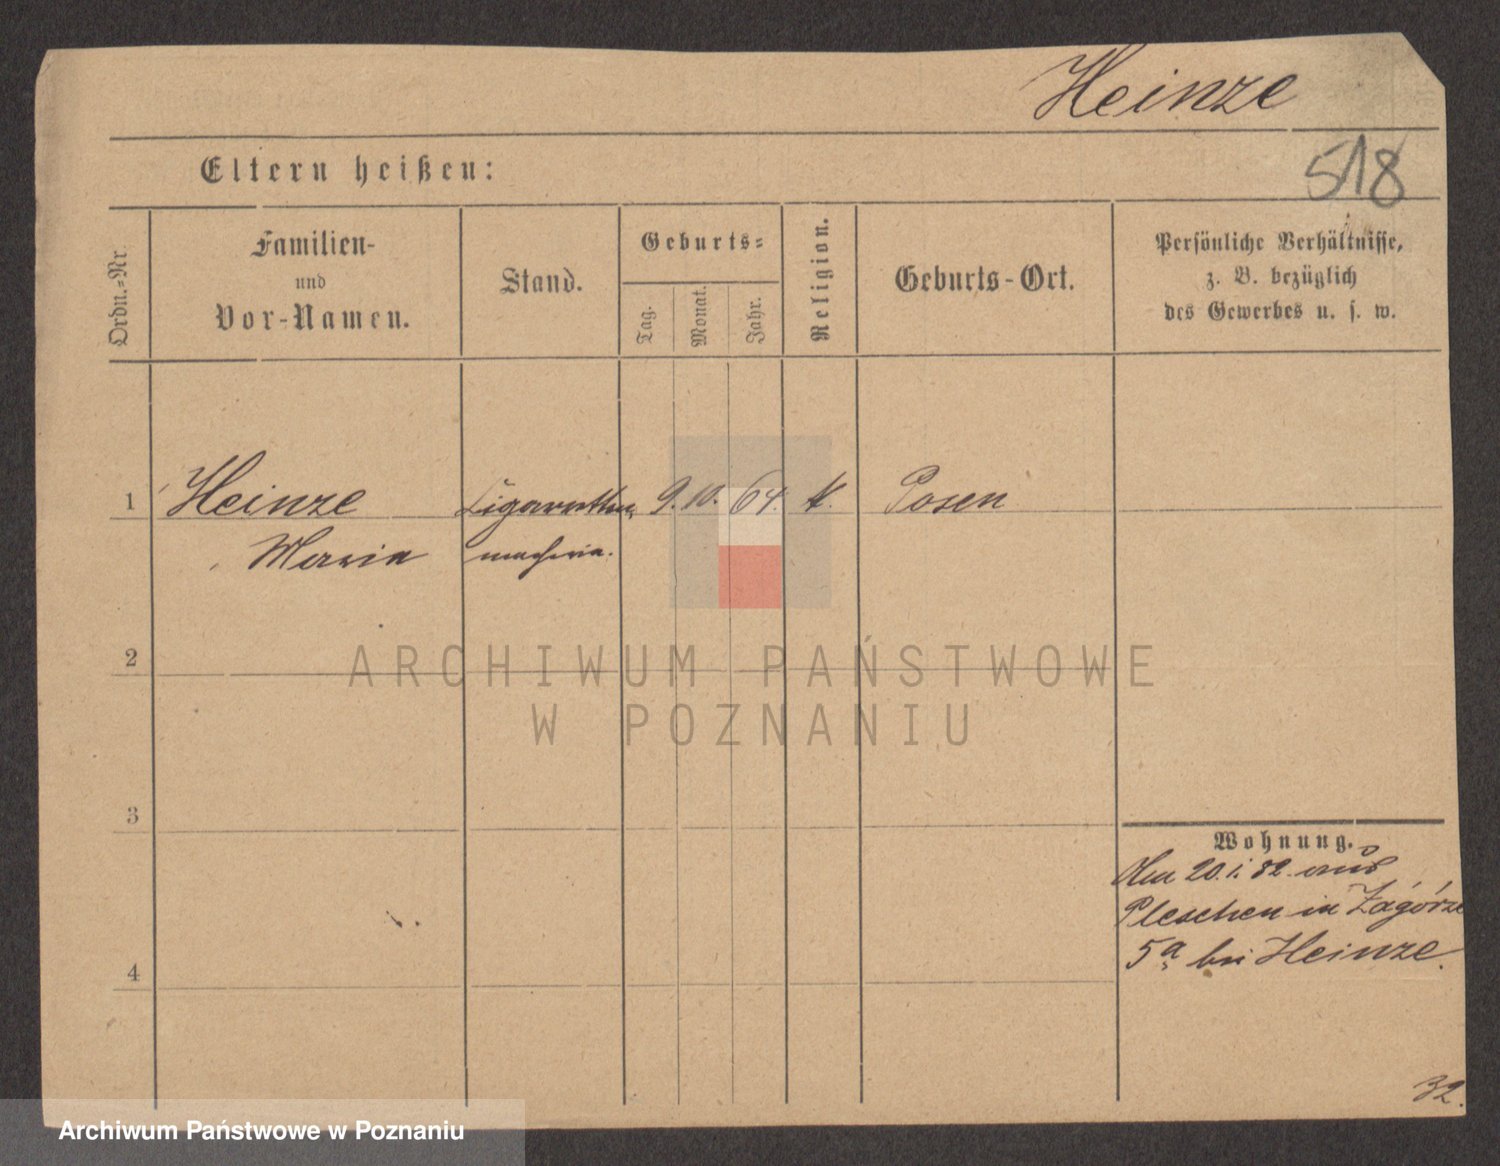 Heinze
518
Eltern heißen:
Ordn.=Nr.
Familien-
und
Vor-Namen.
Stand.
Geburts=
Tag.
Monat.
Jahr.
Religion.
Geburts-Ort.
Persönliche Verhältnisse,
z. B. bezüglich
des Gewerbes u. s. w.
1 Heinze Cigaretten 9. 10. 64. k. Posen
Maria macherin.
2
ARCHIWUM PAŃSTWOWE
W POZNANIU
3
Wohnung.
Den 20. 1. 82 aus
Pleschen in Zagórze
5a bei Heinze.
4
32.
Archiwum Państwowe w Poznaniu